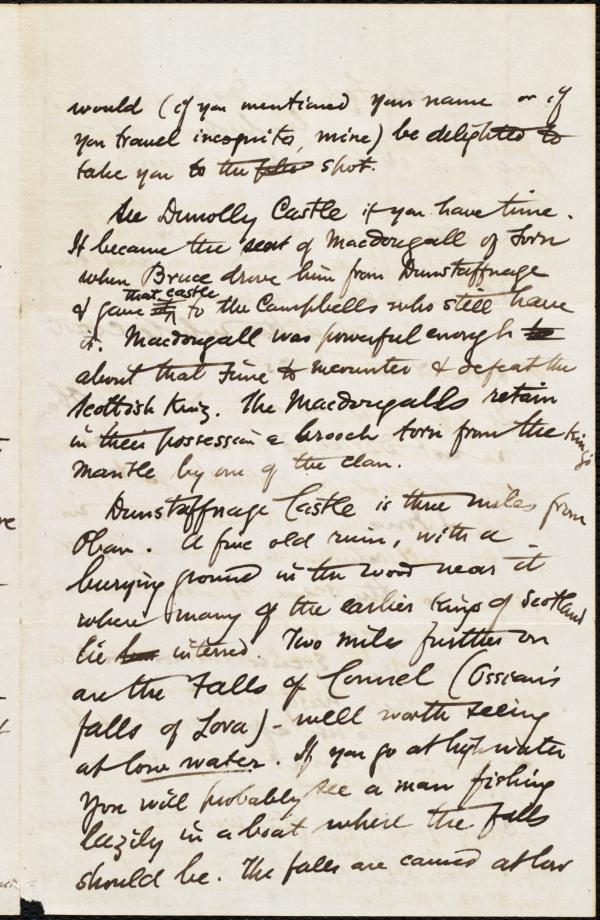 would (if you mentioned your name or if
you travel incognito, mine) be delighted to
take you to the spot.
See Dunolly Castle if you have time.
It became the seat of Macdougall of Lorn
when Bruce drove him from Dunstaffnage
& gave that castle to the Campbells who still have
it. Macdougall was powerful enough
about that time to encounter & defeat the
Scottish King. The Macdougalls retain
in their possession a brooch torn from the King's
mantle by one of the clan.
Dunstaffnage Castle is three miles from
Oban. A fine old ruin, with a
burying ground in the wood near it
where many of the earlier Kings of Scotland
lie interred. Two miles further on
are the Falls of Connel (Ossian's
falls of Lora) - well worth seeing
at low water. If you go at high water
you will probably see a man fishing
lazily in a boat where the falls
should be. The falls are caused at low